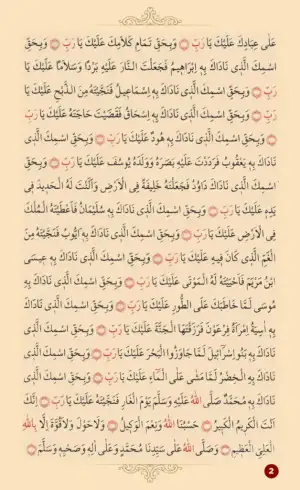 عَلَى عِبَادِكَ عَلَيْكَ يَا رَبِّ ۝ وَبِحَقِّ تَمَامِ كَلَامِكَ عَلَيْكَ يَا رَبِّ ۝ وَبِحَقِّ
اسْمِكَ الَّذِى نَادَاكَ بِهِ إِبْرَاهِيمُ فَجَعَلْتَ النَّارَ عَلَيْهِ بَرْدًا وَسَلَامًا عَلَيْكَ يَا
رَبِّ ۝ وَبِحَقِّ اسْمِكَ الَّذِى نَادَاكَ بِهِ إِسْمَاعِيلُ فَنَجَّيْتَهُ مِنَ الذَّبْحِ عَلَيْكَ يَا
رَبِّ ۝ وَبِحَقِّ اسْمِكَ الَّذِى نَادَاكَ بِهِ إِسْحَاقُ فَقَضَيْتَ حَاجَتَهُ عَلَيْكَ يَا رَبِّ
۝ وَبِحَقِّ اسْمِكَ الَّذِى نَادَاكَ بِهِ هُودٌ عَلَيْكَ يَا رَبِّ ۝ وَبِحَقِّ اسْمِكَ الَّذِى
نَادَاكَ بِهِ يَعْقُوبُ فَرَدَدْتَ عَلَيْهِ بَصَرَهُ وَوَلَدَهُ يُوسُفَ عَلَيْكَ يَا رَبِّ ۝ وَبِحَقِّ
اسْمِكَ الَّذِى نَادَاكَ دَاوُدُ فَجَعَلْتَهُ خَلِيفَةً فِى الْاَرْضِ وَأَلَنْتَ لَهُ الْحَدِيدَ فِى
يَدِهِ عَلَيْكَ يَا رَبِّ ۝ وَبِحَقِّ اسْمِكَ الَّذِى نَادَاكَ بِهِ سُلَيْمَانُ فَأَعْطَيْتَهُ الْمُلْكَ
فِى الْاَرْضِ عَلَيْكَ يَا رَبِّ ۝ وَبِحَقِّ اسْمِكَ الَّذِى نَادَاكَ بِهِ أَيُّوبُ فَنَجَّيْتَهُ مِنَ
الْغَمِّ الَّذِى كَانَ فِيهِ عَلَيْكَ يَا رَبِّ ۝ وَبِحَقِّ اسْمِكَ الَّذِى نَادَاكَ بِهِ عِيسَى
ابْنُ مَرْيَمَ فَأَحْيَيْتَ لَهُ الْمَوْتَى عَلَيْكَ يَا رَبِّ ۝ وَبِحَقِّ اسْمِكَ الَّذِى نَادَاكَ بِهِ
مُوسَى لَمَّا خَاطَبَكَ عَلَى الطُّورِ عَلَيْكَ يَا رَبِّ ۝ وَبِحَقِّ اسْمِكَ الَّذِى نَادَاكَ
بِهِ أٰسِيَةُ امْرَأَةُ فِرْعَوْنَ فَرَزَقْتَهَا الْجَنَّةَ عَلَيْكَ يَا رَبِّ ۝ وَبِحَقِّ اسْمِكَ الَّذِى
نَادَاكَ بِهِ بَنُو إِسْرَائِيلَ لَمَّا جَاوَزُوا الْبَحْرَ عَلَيْكَ يَا رَبِّ ۝ وَبِحَقِّ اسْمِكَ الَّذِى
نَادَاكَ بِهِ الْخِضْرُ لَمَّا مَشَى عَلَى الْمَاءِ عَلَيْكَ يَا رَبِّ ۝ وَبِحَقِّ اسْمِكَ الَّذِى
نَادَاكَ بِهِ مُحَمَّدٌ صَلَّى اللّٰهُ عَلَيْهِ وَسَلَّمَ يَوْمَ الْغَارِ فَنَجَّيْتَهُ عَلَيْكَ يَا رَبِّ ۝ إِنَّكَ
أَنْتَ الْكَرِيمُ الْكَبِيرُ ۝ حَسْبُنَا اللّٰهُ وَنِعْمَ الْوَكِيلُ ۝ وَلَا حَوْلَ وَلَا قُوَّةَ إِلَّا بِاللّٰهِ
الْعَلِىِّ الْعَظِيمِ ۝ وَصَلَّى اللّٰهُ عَلَى سَيِّدِنَا مُحَمَّدٍ وَعَلَى اٰلِهِ وَصَحْبِهِ وَسَلَّمَ ۝
2